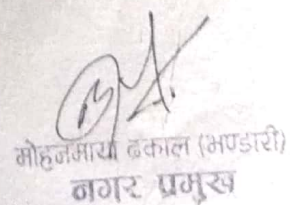 मोहनमाया ढकाल (भण्डारी)
नगर प्रमुख